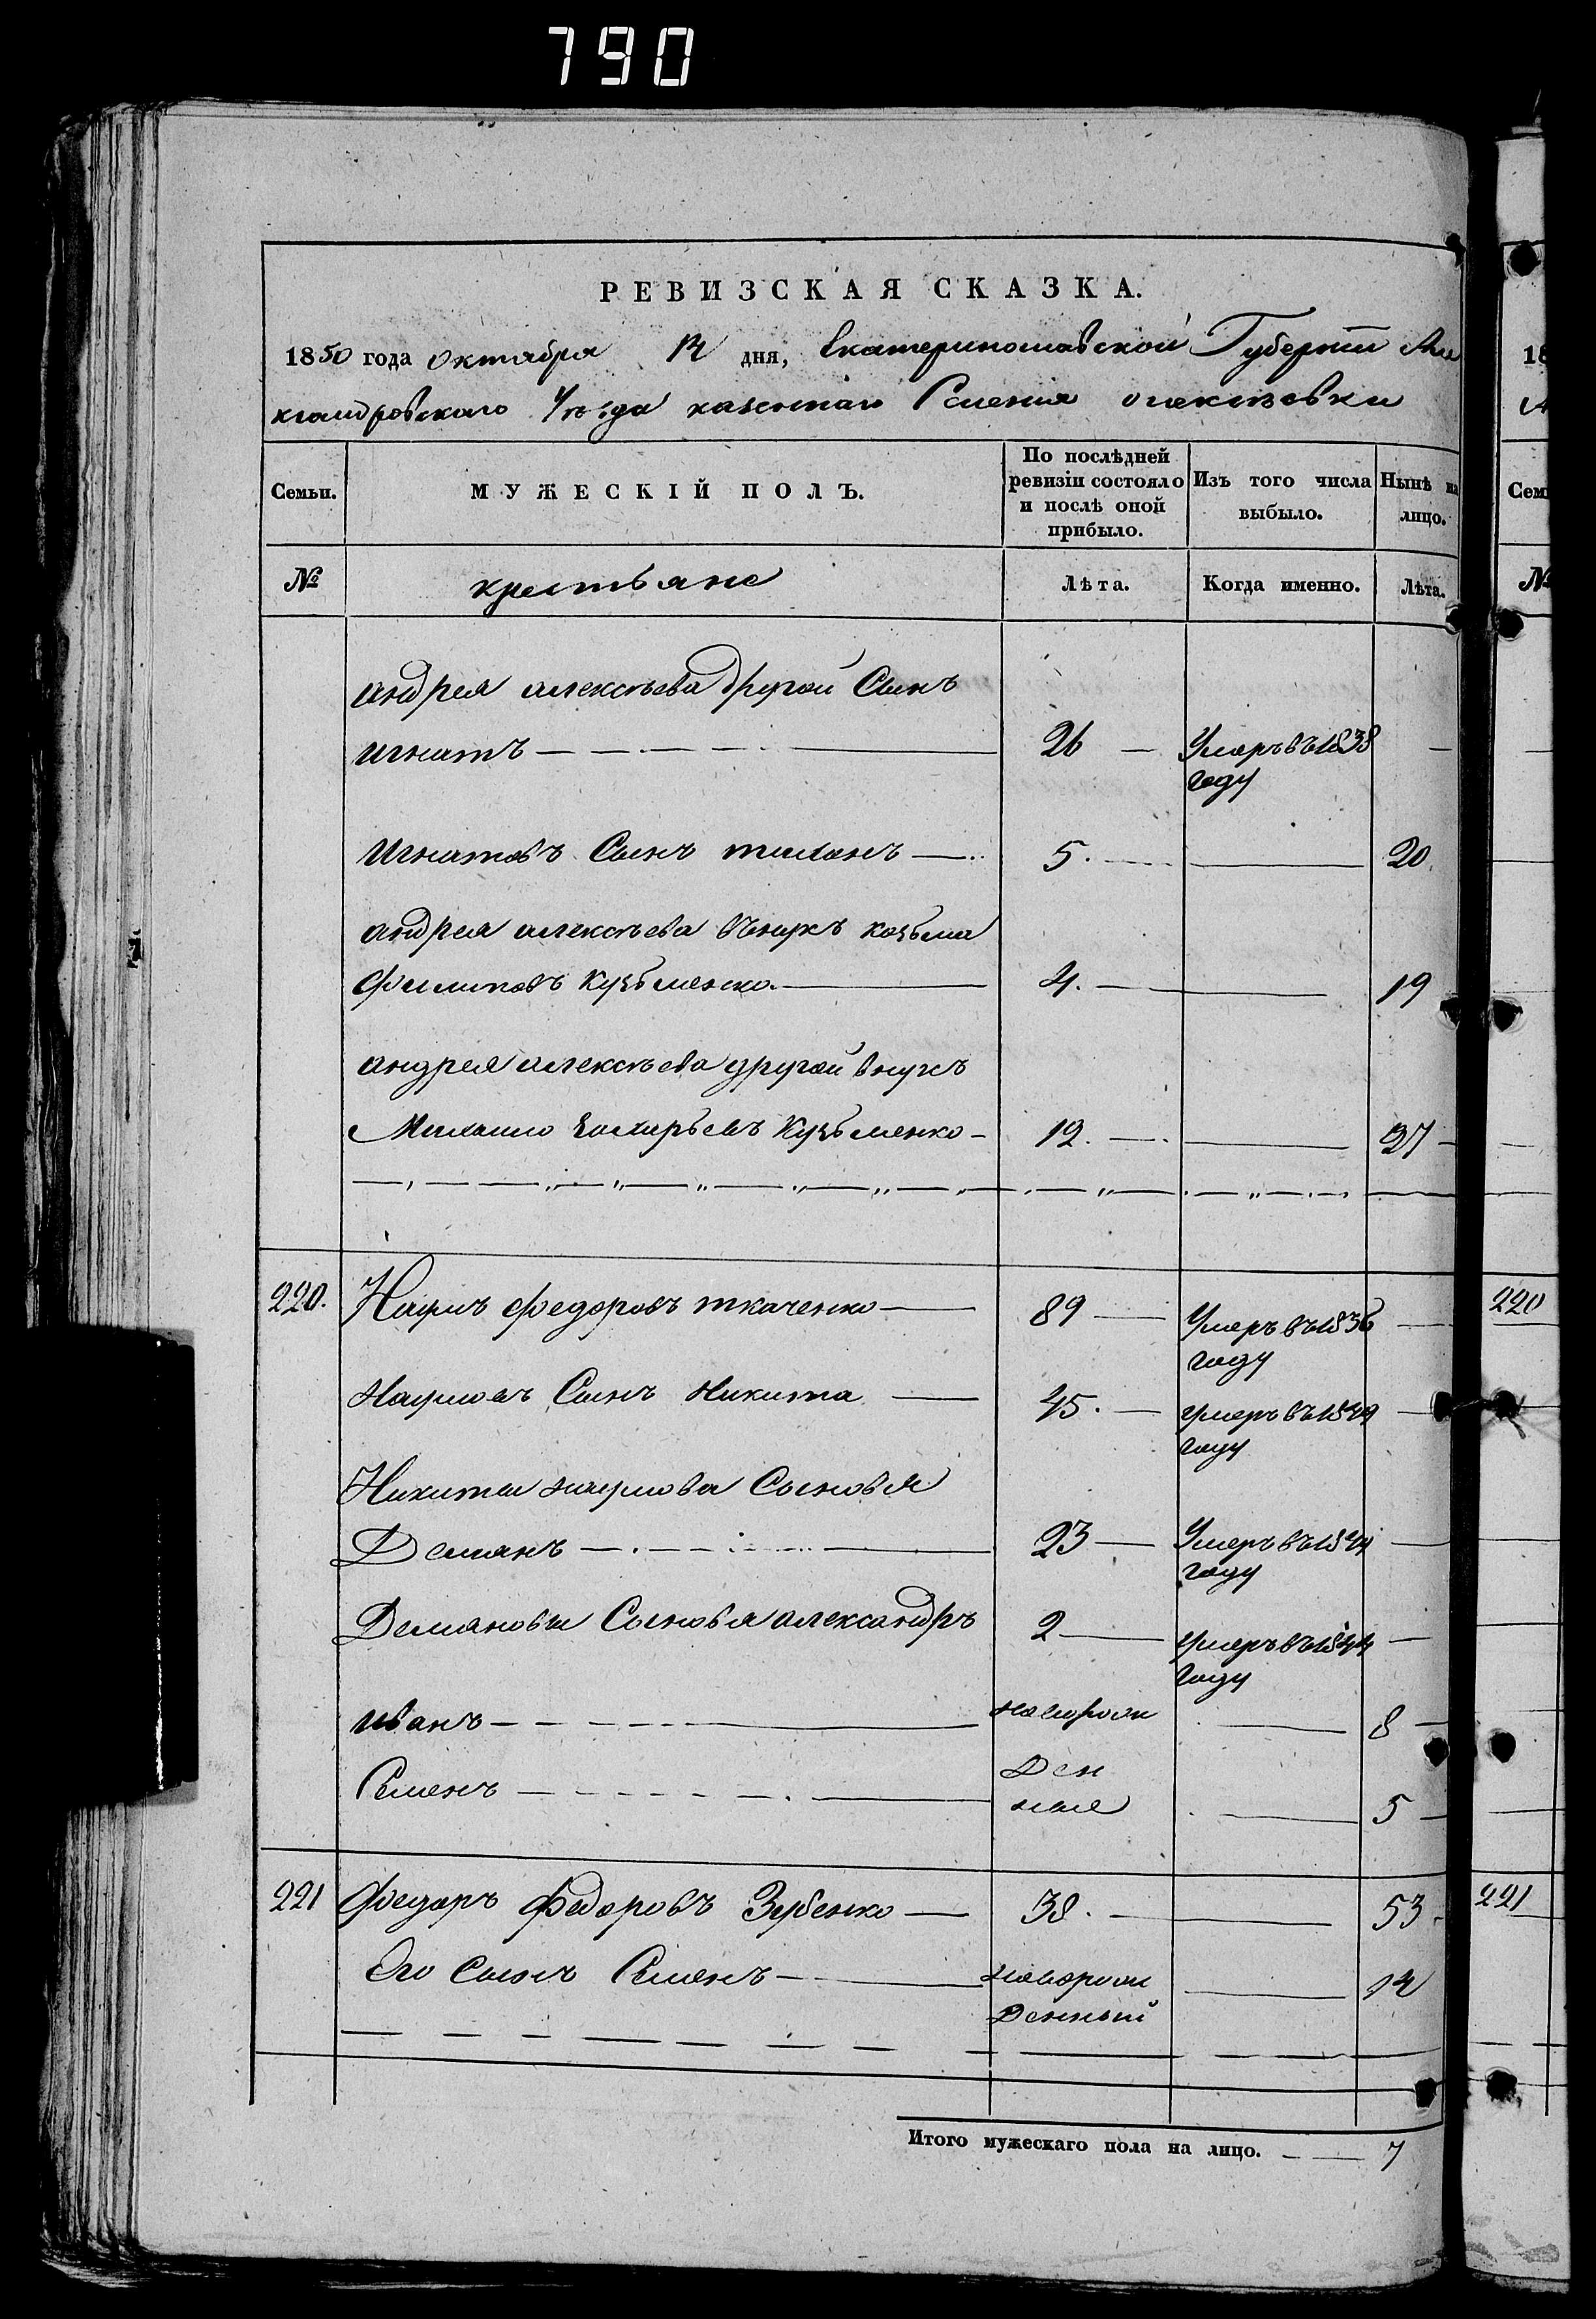 790
РЕВИЗСКАЯ СКАЗКА.
1850 года октября 14 дня, Екатеринославской Губернии Але
ксандровского Уѣзда казеннаго Селения
Семьи.
МУЖЕСКІЙ ПОЛЪ.
По послѣдней ревизіи состояло и послѣ оной прибыло.
Изъ того числа выбыло.
Нынѣ на лицо.
№
крестьяне
Лѣта.
Когда именно.
Лѣта.
андрея алексѣева другой Сынъ
игнатъ 26 Умеръ въ 1838
году
Игнатовъ Сынъ тихонъ 5. 20
андрея алексѣева внукъ козьма
филиповъ Кузьменко. 4. 19
андрея алексѣева другой внукъ
Михаило захарьевъ Кузьменко 12. 27
220. Наумъ федоровъ ткаченко 89 Умеръ въ 1836
году
Наумовъ Сынъ Никита 45. умеръ въ 1849
году
Никиты наумова Сыновья
Демянъ 23 Умеръ въ 1844
году
Демяновы Сыновья александръ 2 умеръ въ 1844
году
иванъ новорож 8
Ден
Семенъ ные 5
221 Федоръ Федоровъ Зубенко 38. 53
Его Сынъ Семенъ новорож 14
Денный
Итого мужескаго пола на лицо. 7
18
Сем
№
220
221